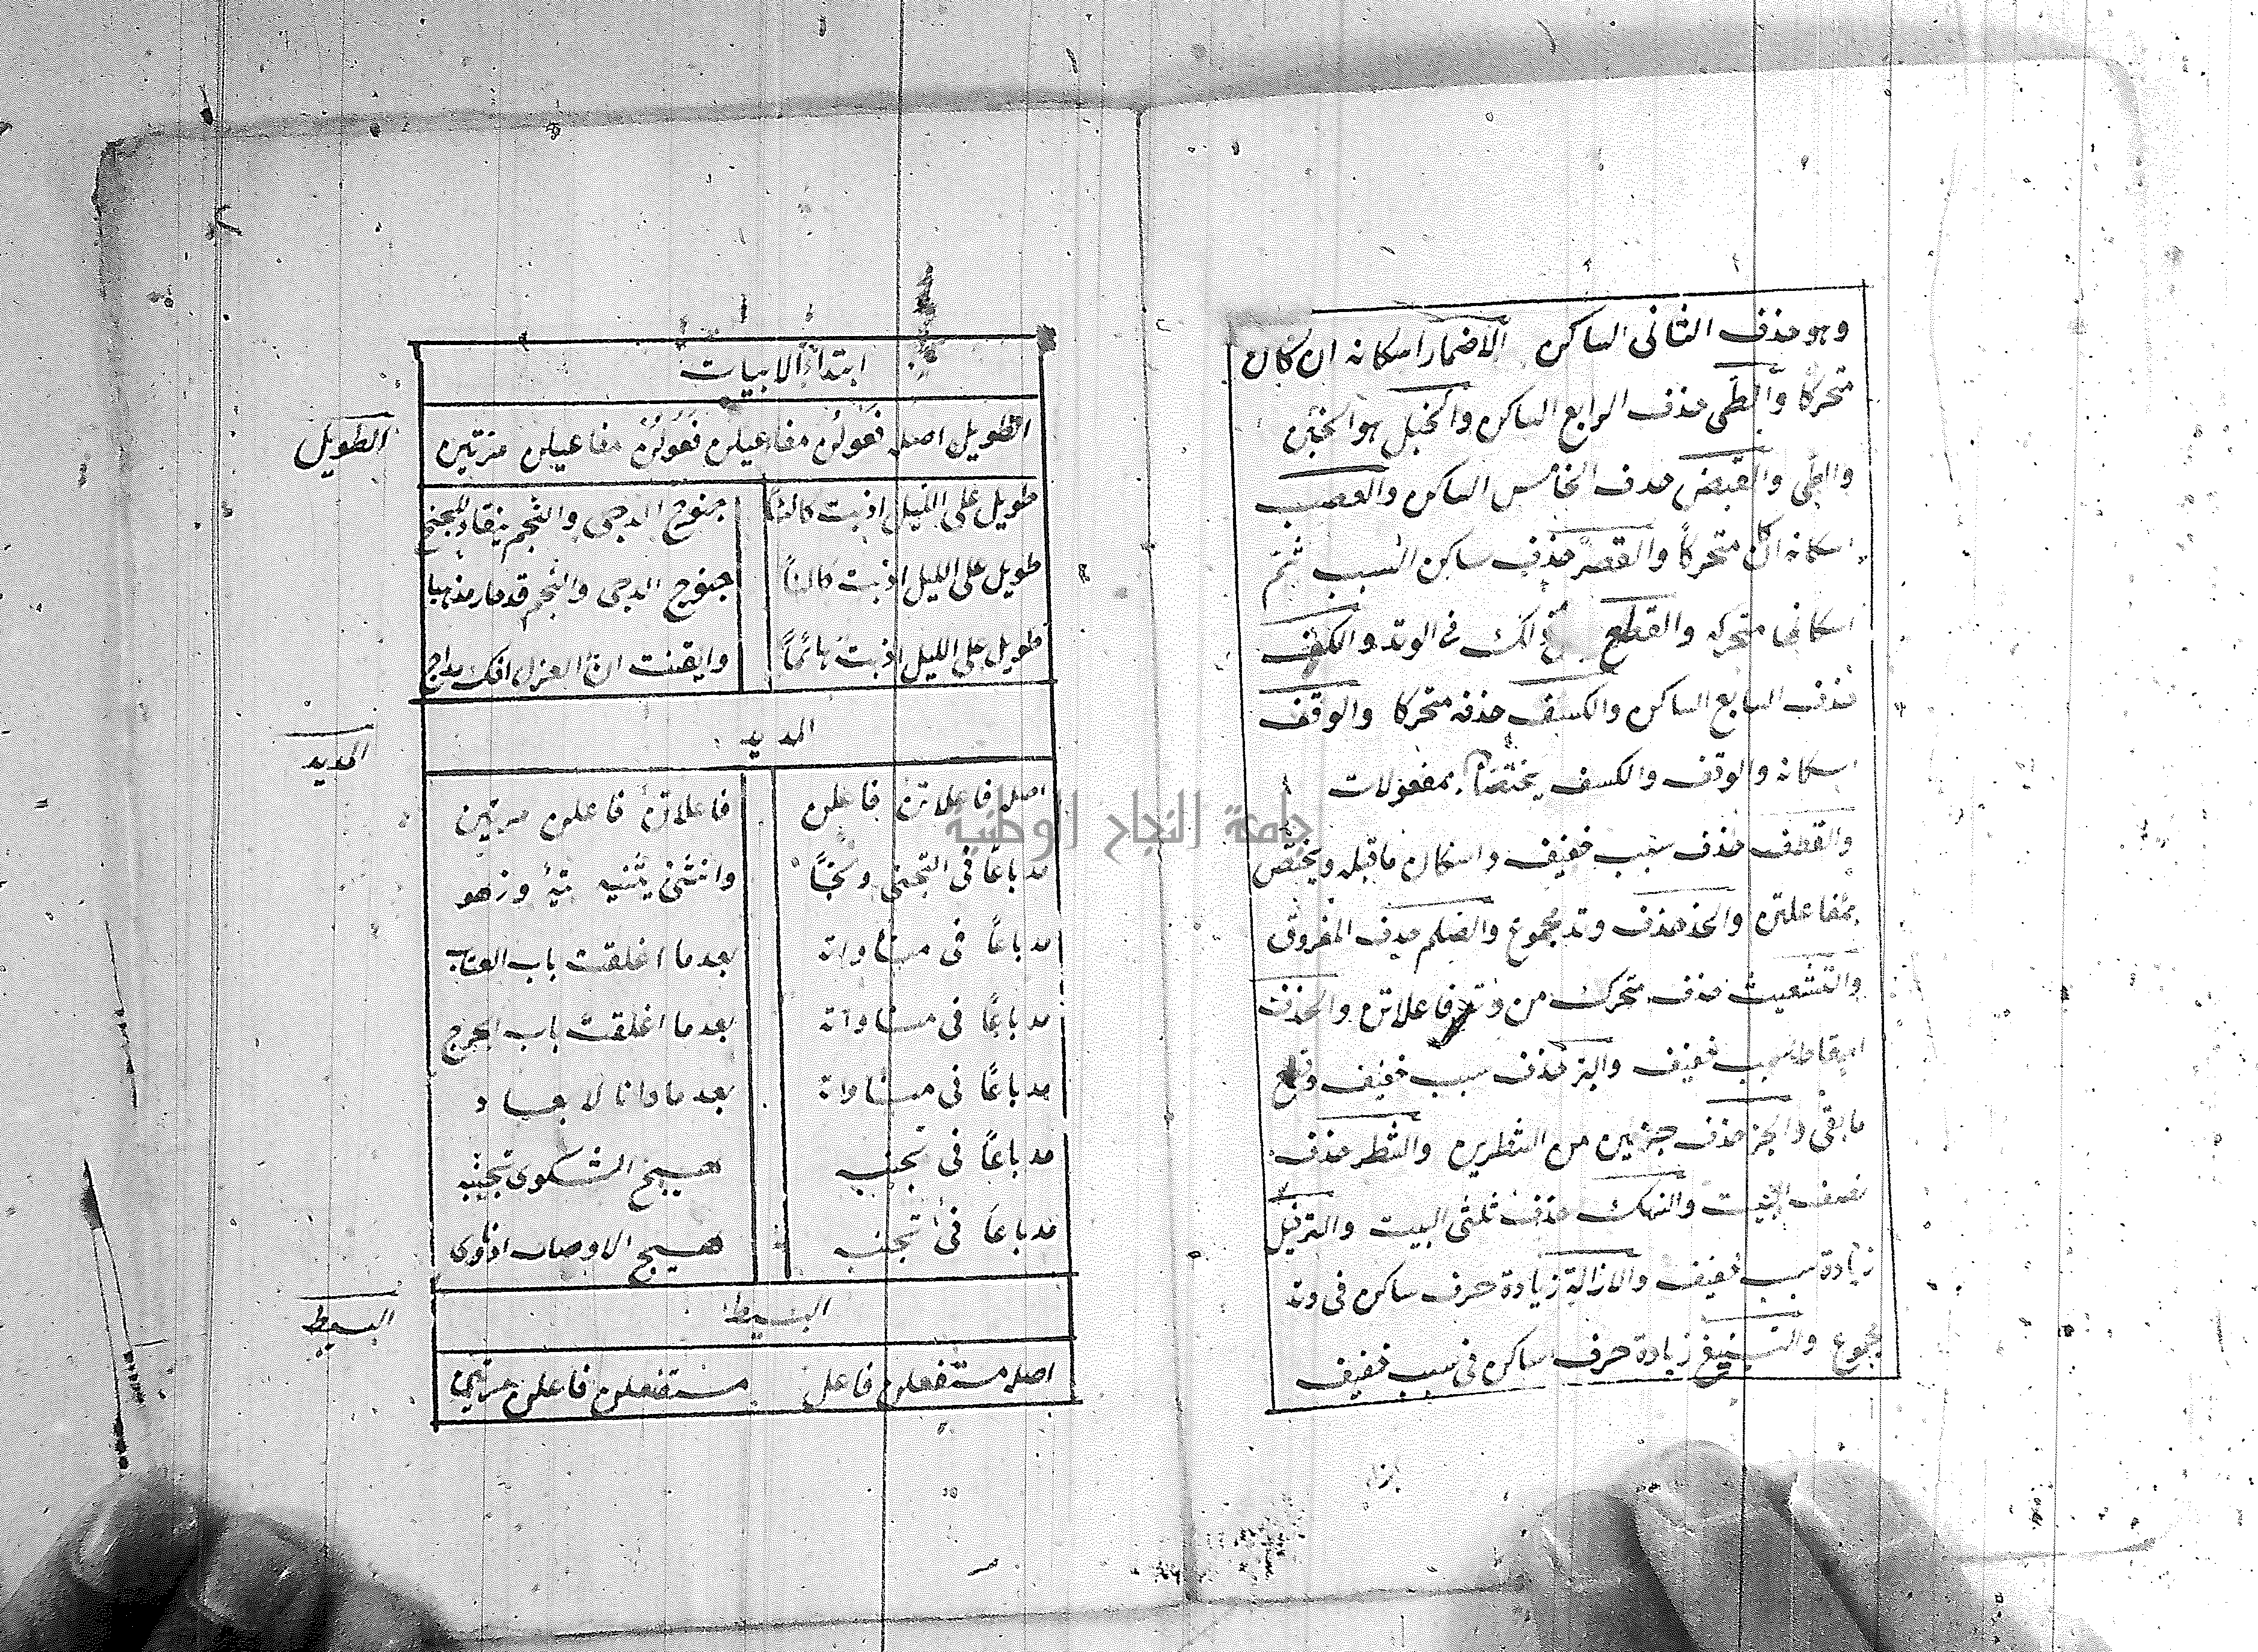 وهو حذف الثانى الساكن الاضمار اسكانه ان كان
متحركا والطى حذف الرابع الساكن والخبل هو الخبن
والطى والقبض حذف الخامس الساكن والعصب
اسكانه ان كان متحركاً والقصر حذف ساكن السبب ثم
اسكان متحركه والقطع ذلك فى الوتد والكف
حذف السابع الساكن والكسف حذفه متحركا والوقف
اسكانه والوقف والكسف يختصا بمفعولات
والقطف حذف سبب خفيف واسكان ما قبله ويختص
بمفاعلتن والحذ حذف وتد مجموع والصلم حذف المفروق
والتشعيث حذف متحرك من وتد فاعلاتن والحذف
اسقاط سبب خفيف والبتر حذف سبب خفيف وقطع
ما بقى والجز حذف جزئين من الشطرين والشطر حذف
نصف البيت والنهك حذف ثلثى البيت والترفيل
زيادة سبب خفيف والازالة زيادة حرف ساكن فى وتد
مجموع والتسبيغ زيادة حرف ساكن فى سبب خفيف
ابتداء الابيات
الطويل
الطويل اصله فَعُولُن مفاعيلن فَعُولُن مفاعيلن مرتين
طويل على الليل اذ بت كالئا جنوح الدجى والنجم ينقاد للجنح
طويل على الليل اذ بت كالئاً جنوح الدجى والنجم قد مار مذهبا
طويل على الليل اذ بت هائماً وايقنت ان العزل افك
المديد
المديد
اصله فاعلاتن فاعلن فاعلاتن فاعلن مرتين
مد باعًا فى التجنى وانثنى يثنيه تيه وزهو
مد باعاً فى بعدما اغلقت باب العتاب
مد باعًا فى بعدما اغلقت باب الحرج
مد باعًا فى بعدما وانا
مد باعًا فى تجنيه هيج الشكوى تجنيه
مد باعًا فى تجنيه هيج الاوصاب
البسيط
البسيط
اصله مستفعلن فاعل مستفعلن فاعلن مرتين
جامعة النجاح الوطنية